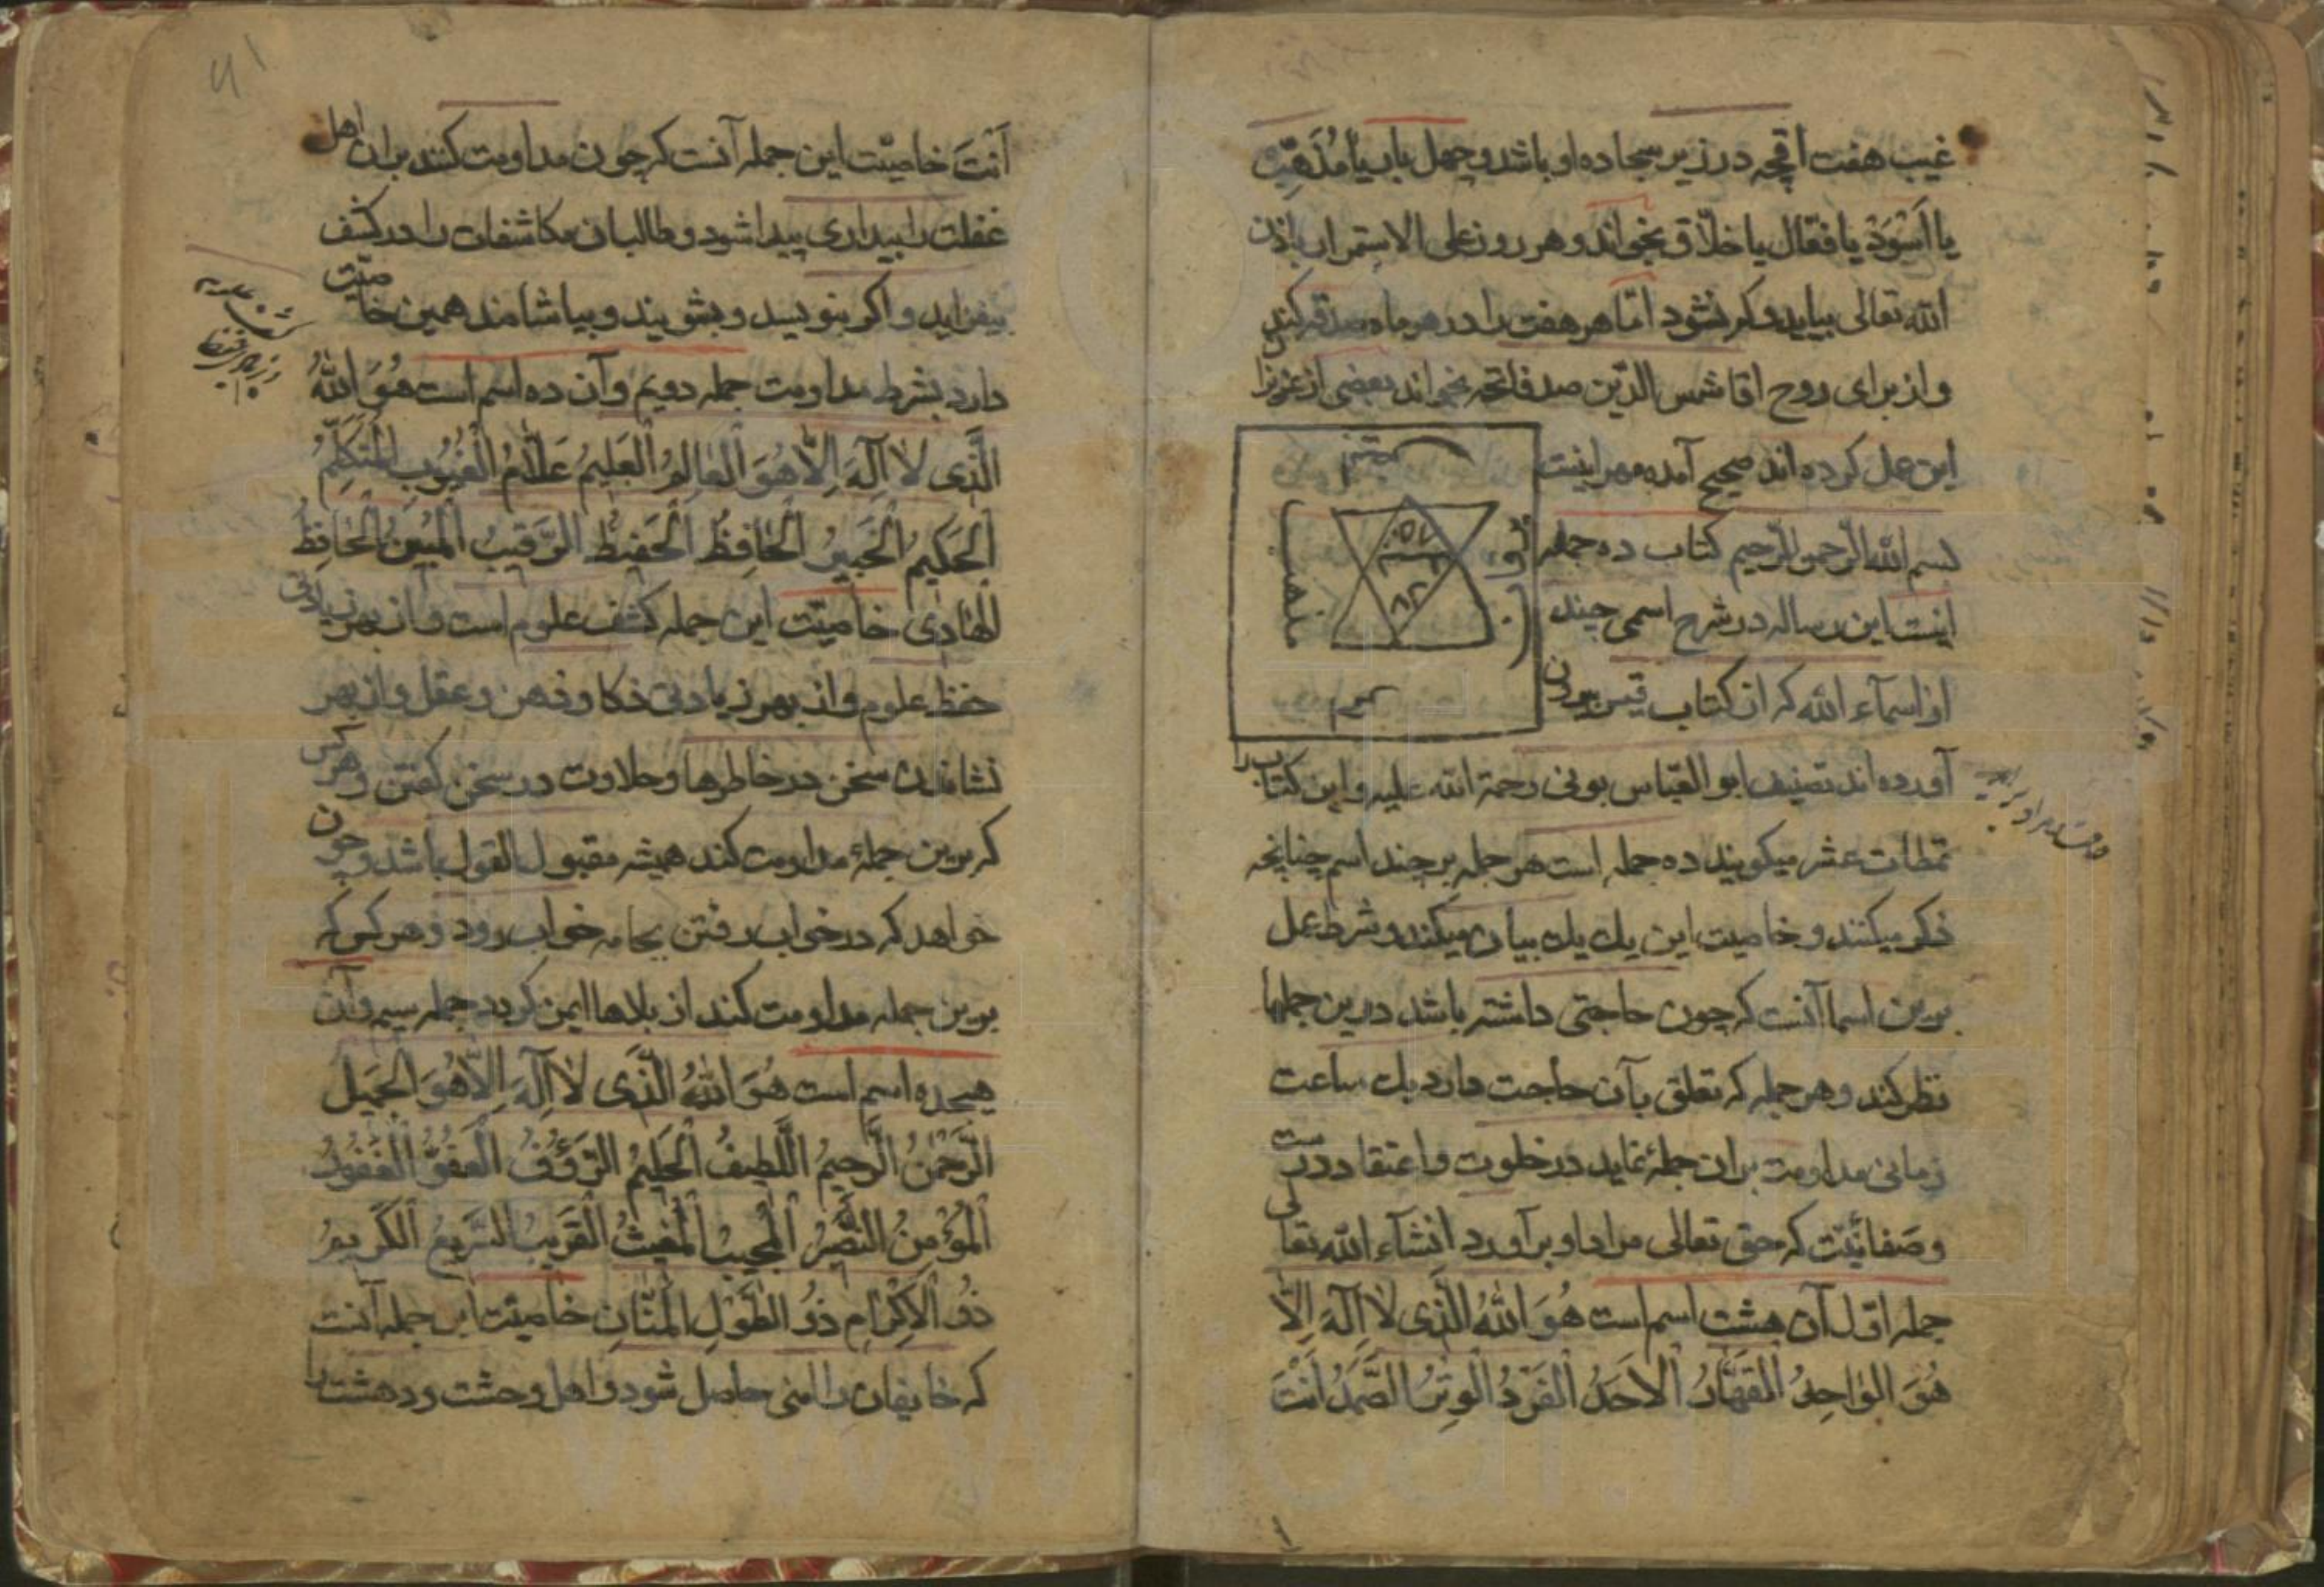 غیب هفت اقچه در زیر سجاده او باشد و چهل بار یا مُذَهِّب
یا اَسْوَدْ یا فعّال یا خلّاق بخواند و هر روز علی الاستمرار باذن
الله تعالی بیاید و کم نشود امّا هر هفت را در هر ماه صدقه کند
و از برای روح اقا شمس الدّین صد فاتحه بخواند بعضی از عزیزا
این عمل کرده‌اند صحیح آمده مهر اینست
بسم الله الرّحمن الرّحیم کتاب ده جمله
اینست این رساله در شرح اسمی چند
از اسمآء الله که از کتاب قبس بیرون
آورده‌اند تصنیف ابو العبّاس بونی رحمة الله علیه و این کتاب را
نمطات عشر میگویند ده جمله است هر جمله بر چند اسم چنانچه
ذکر میکنند و خاصیت این یك یك بیان میکند و شرط عمل
برین اسما آنست که چون حاجتی داشته باشد درین جملها
نظر کند و هر جمله که تعلق بآن حاجت دارد یك ساعت
زمانی مداومت بران جمله نماید در خلوت و اعتقاد درست
و صفا نیّت که حق تعالی مراد او برآورد انشآء الله تعالی
جمله اوّل آن هشت اسم است هُوَ اللهُ الَّذی لاٰ اِلٰهَ اِلاّٰ
هُوَ الوٰاحِدُ القَهّٰارُ الاَحَدُ الفَرْدُ الْوِتْرُ الصَّمَدُ اَنْتَ
اَنْتَ خاصیّت این جمله آنست که چون مداومت کنند بران اهل
غفلت را بیداری پیدا شود و طالبان مکاشفات را در کشف
بیفزاید و اکر بنویسد و بشویند و بیاشامند همین خاصیّت
دارد بشرط مداومت جمله دویم و آن ده اسم است هُوَ اللهُ
الَّذی لاٰ اِلٰهَ اِلاّٰ هُوَ الْعٰالِمُ الْعَلِیمُ عَلّٰامُ الْغُیُوبِ الْمُتَکَلِّمُ
اَلْحَکیمُ الْخَبیرُ الْحٰافِظُ الْحَفیظُ الرَّقیبُ الْمُبینُ الْحٰافِظُ
الْهٰادِی خاصیّت این جمله کشف علوم است و از بهر زیادتی
حفظ علوم و از بهر زیادتی ذکا و ذهن و عقل و از بهر
نشاندن سخن در خاطرها و حلاوت در سخن کفتن و هر کس
که برین جملۀ مداومت کند همیشه مقبول القول باشد و چون
خواهد که در خواب رفتن بجامه خواب رود و هر کس که
برین جمله مداومت کند از بلاها ایمن کردد جمله سیم و آن
هیجده اسم است هُوَ اللهُ الَّذی لاٰ اِلٰهَ اِلاّٰ هُوَ الجَمیل
الرَّحْمٰنُ الرَّحِیمُ اللَّطیفُ الْحَلیمُ الرَّؤُفُ الْعَفُوُّ الْغَفُورُ
اَلْمُؤْمِنُ النَّصیرُ الْمُجیبُ الْمُغیثُ الْقَریبُ السَّریعُ الْکَریمُ
ذُو الْاِکْرٰامِ ذُو الطَّوْلِ الْمَنّٰانِ خاصیّت این جمله آنست
که خایفان را امنی حاصل شود و اهل وحشت و دهشت را